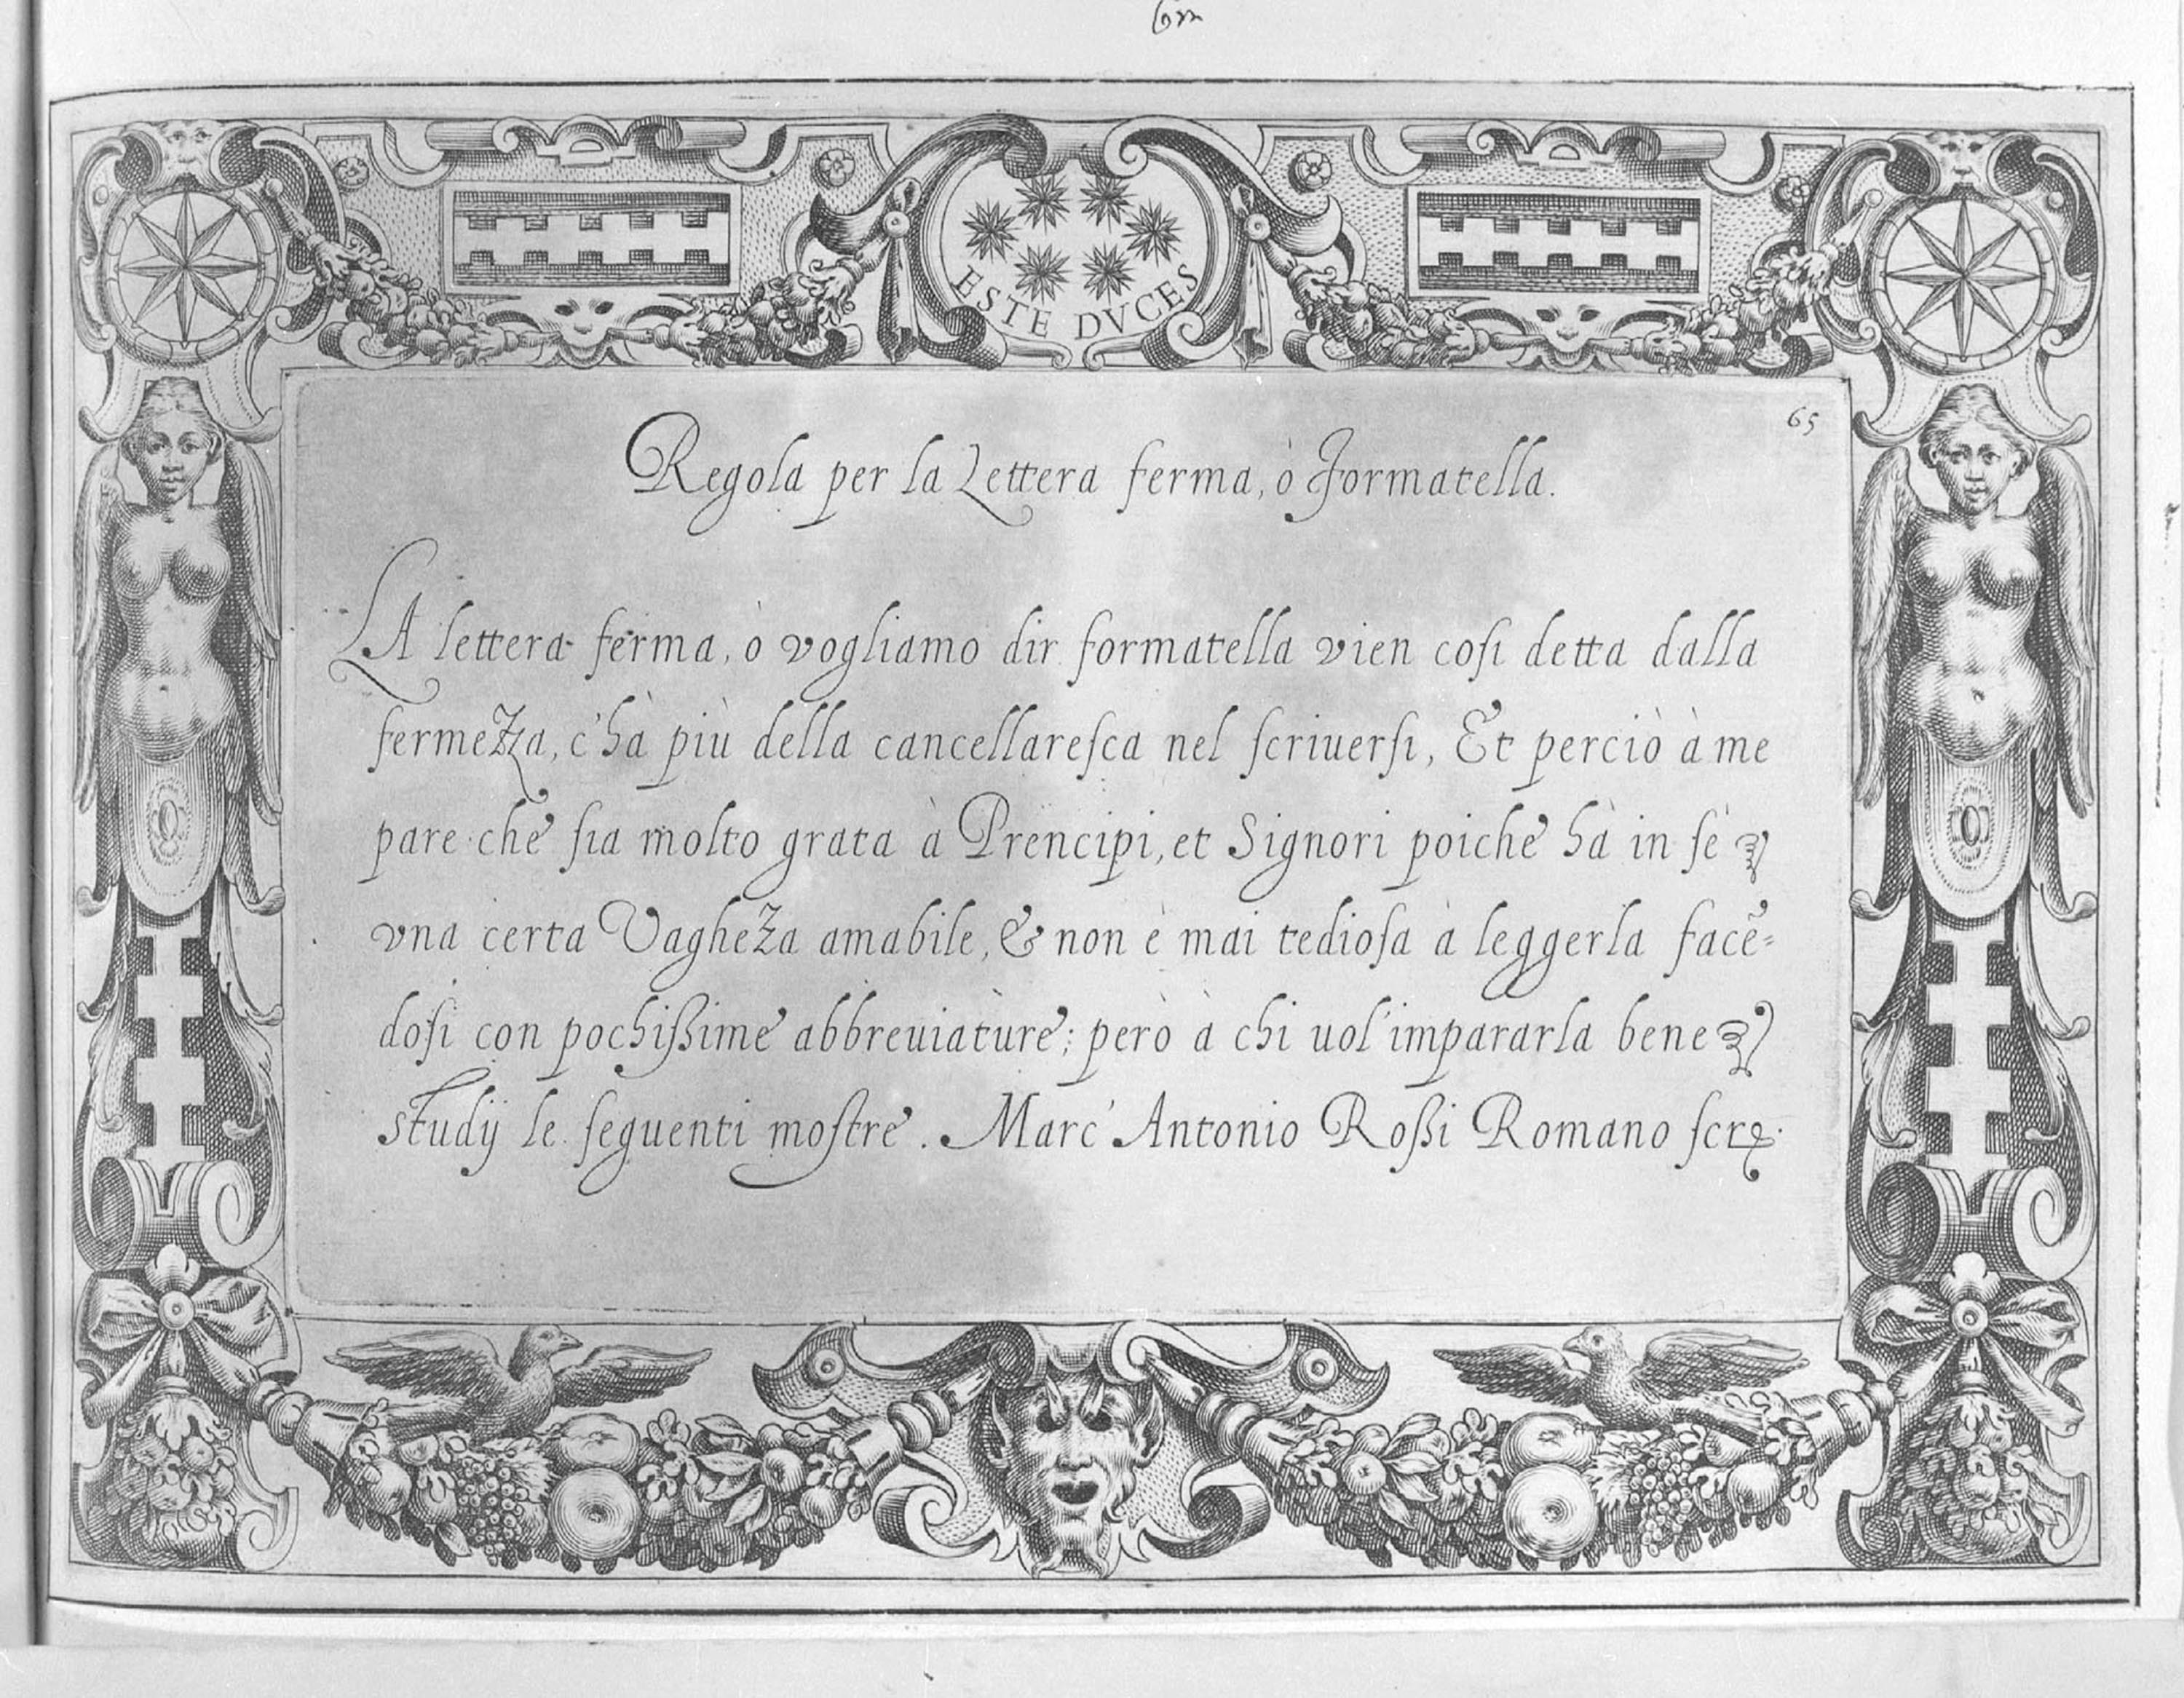 ESTE DVCES
65
Regola per la Lettera ferma, ò Formatella.
LA lettera ferma, ò vogliamo dir formatella vien cosi detta dalla
fermezza, c'hà più della cancellaresca nel scriuersi, Et perciò à me
pare che sia molto grata à Prencipi, et Signori poiche hà in sè
vna certa Vaghezza amabile, & non è mai tediosa à leggerla facẽ=
dosi con pochißime abbreuiature; però à chi uol'impararla bene
studij le seguenti mostre. Marc'Antonio Roßi Romano scr.